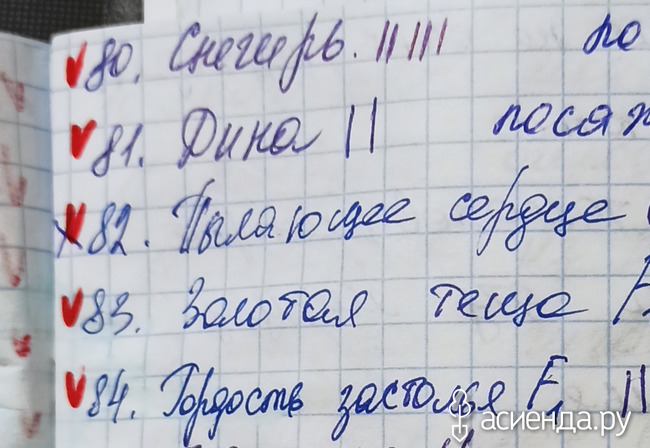 80. Снегирь. || ||| по
81. Дина || посаж
82. Пылающее сердце (
83. Золотая теща F
84. Гордость застолья F1 ||
асиенда.ру